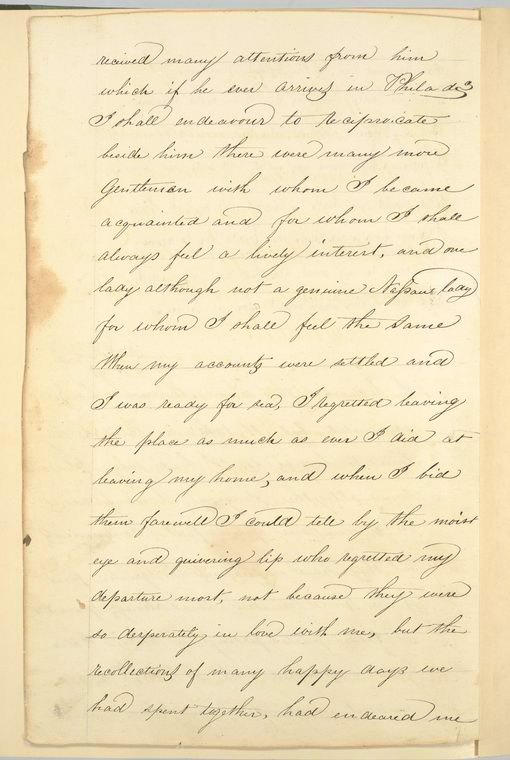 recieved many attentions from him
which if he ever arrives in Philada
I shall endeavour to reciprocate
beside him there were many more
Gentlemen with whom I became
acquainted and for whom I shall
always feel a lively interest, and one
lady although not a genuine Nassau lady
for whom I shall feel the same
When my accounts were settled and
I was ready for sea, I regretted leaving
the place as much as ever I did at
leaving my home, and when I bid
them farewell I could tell by the moist
eye and quivering lip who regretted my
departure most, not because they were
so desperately in love with me, but the
recollections of many happy days we
had spent together, had endeared me